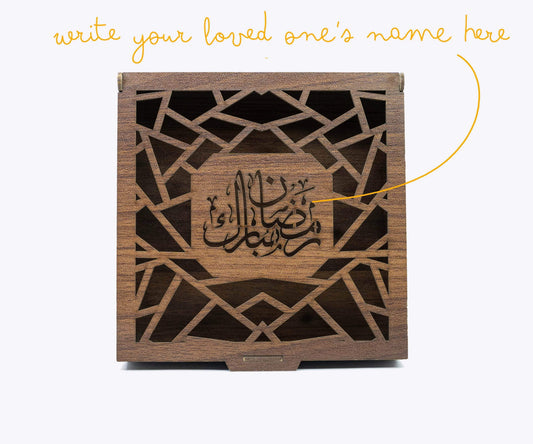 write your loved one's name here
رمضان
مبارك